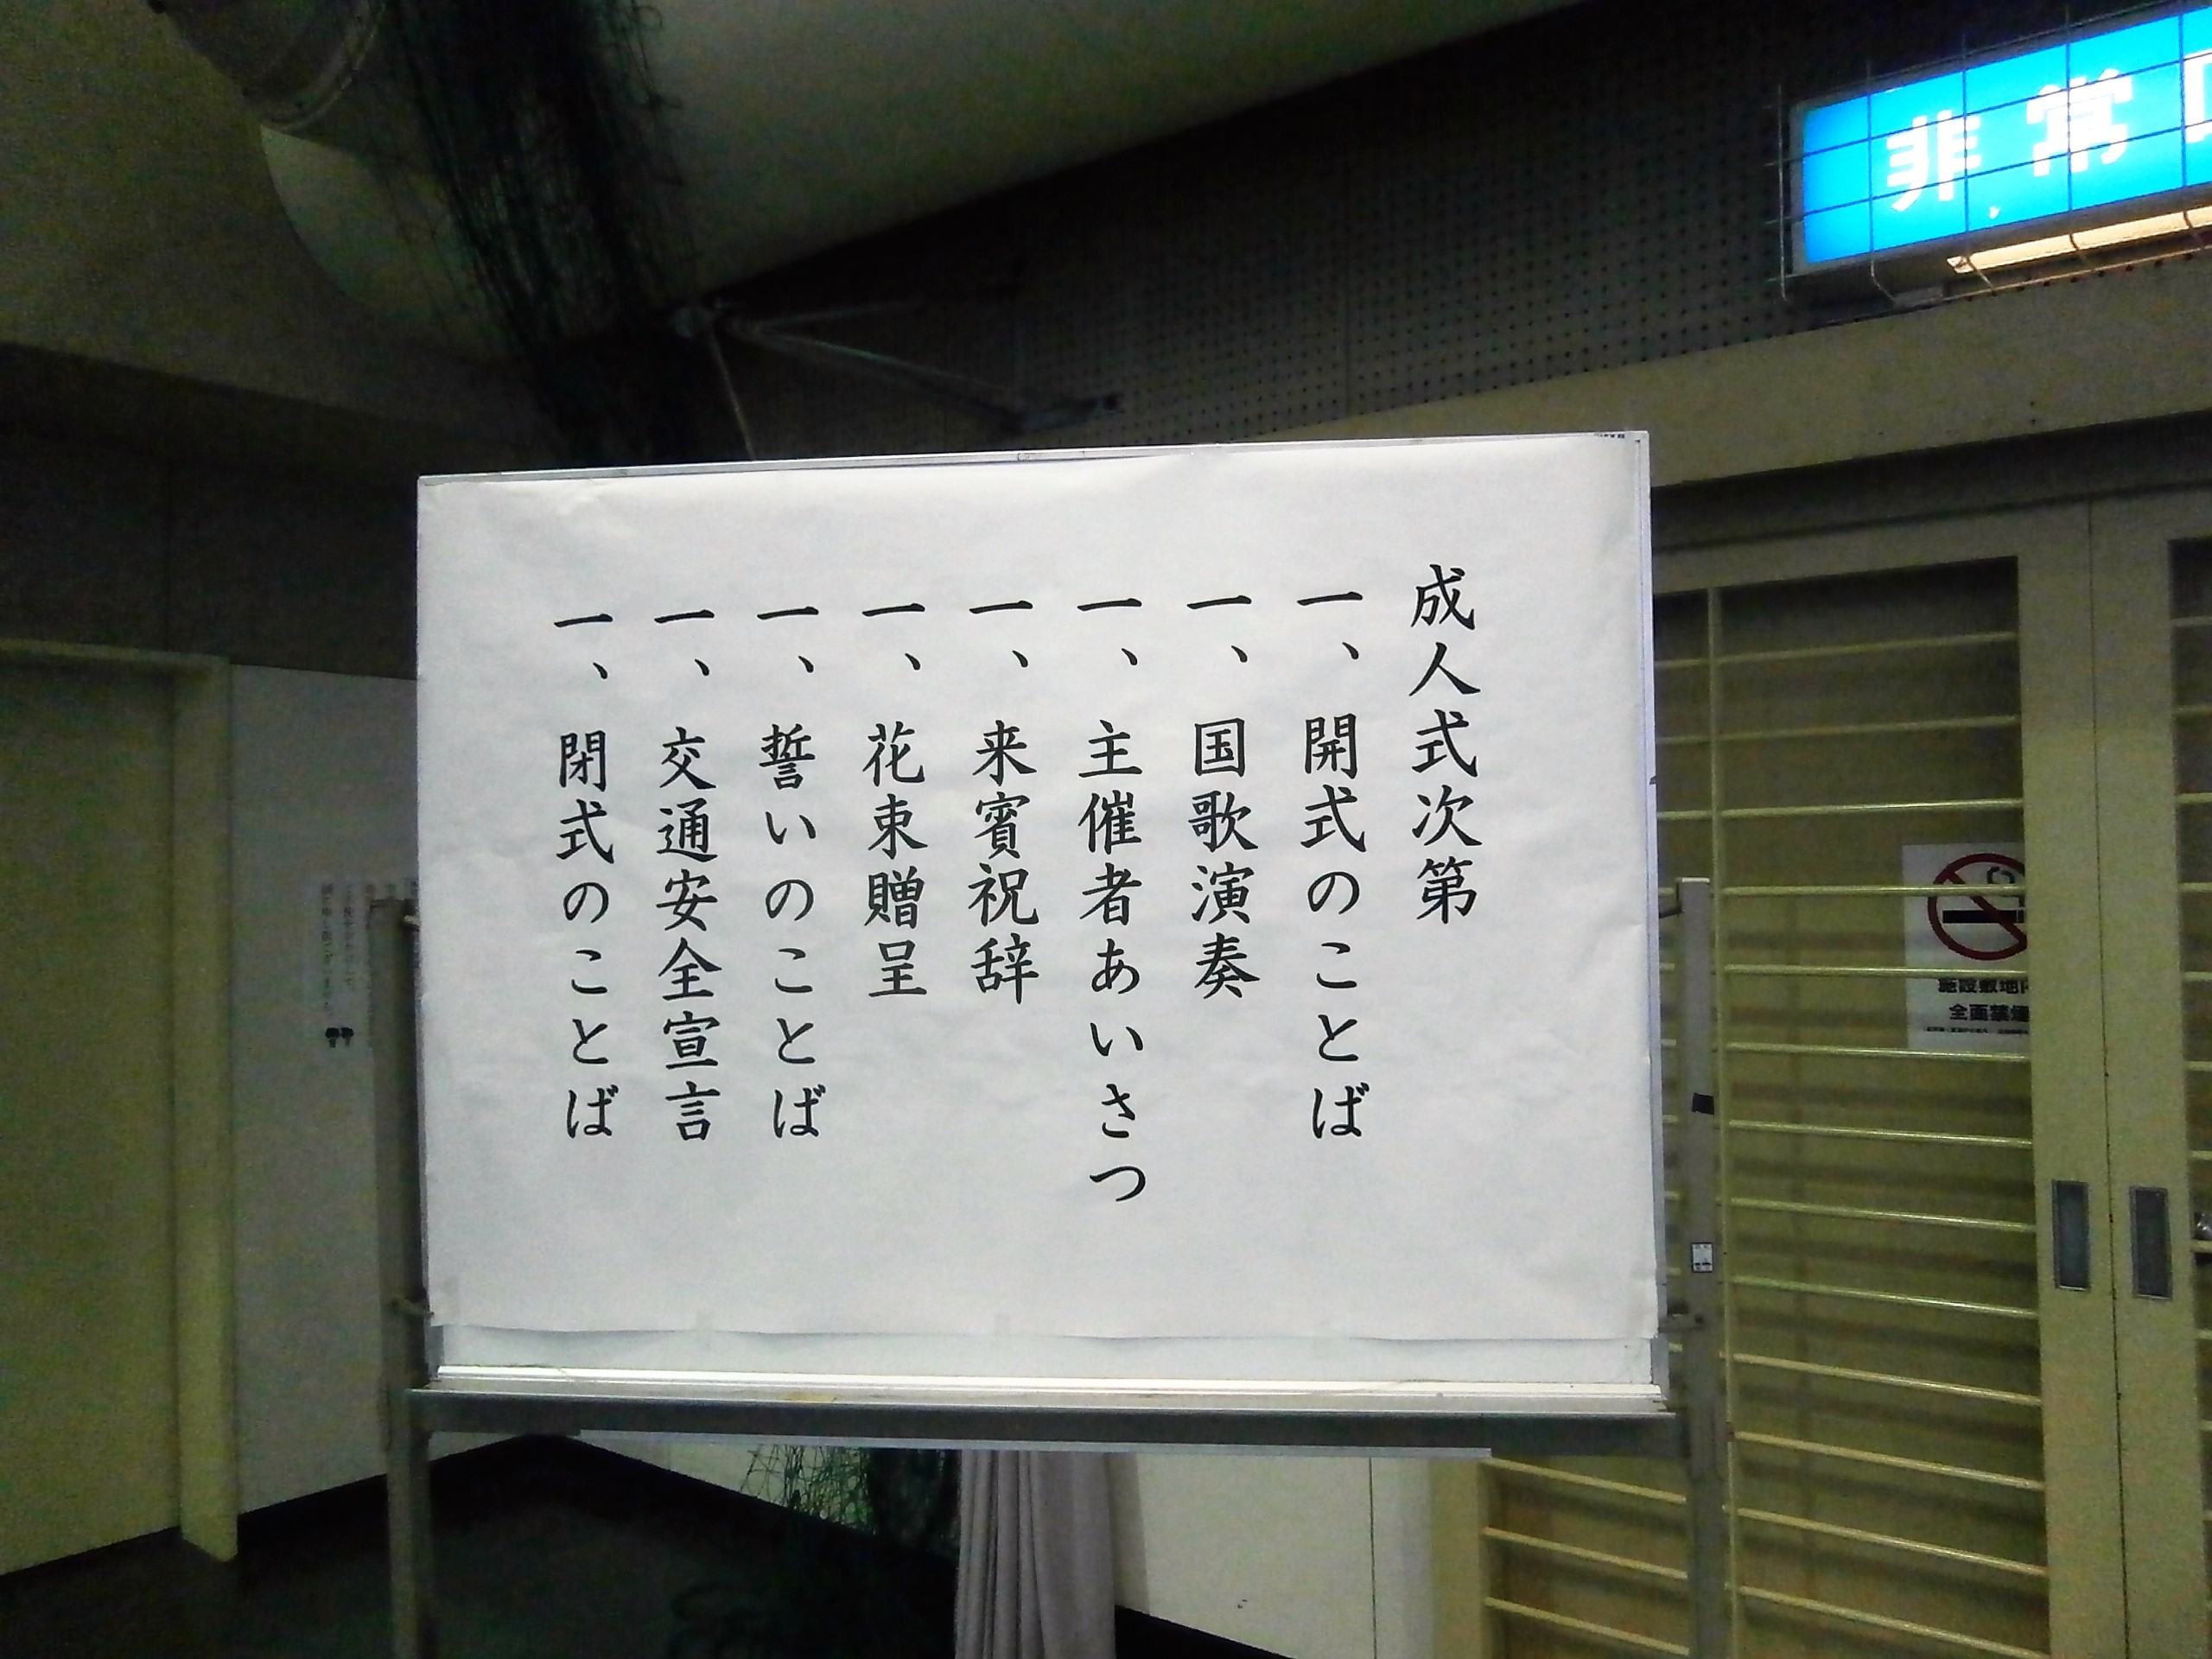 成人式次第
一、開式のことば
一、国歌演奏
一、主催者あいさつ
一、来賓祝辞
一、花束贈呈
一、誓いのことば
一、交通安全宣言
一、閉式のことば
非常
施設敷地
全面禁煙